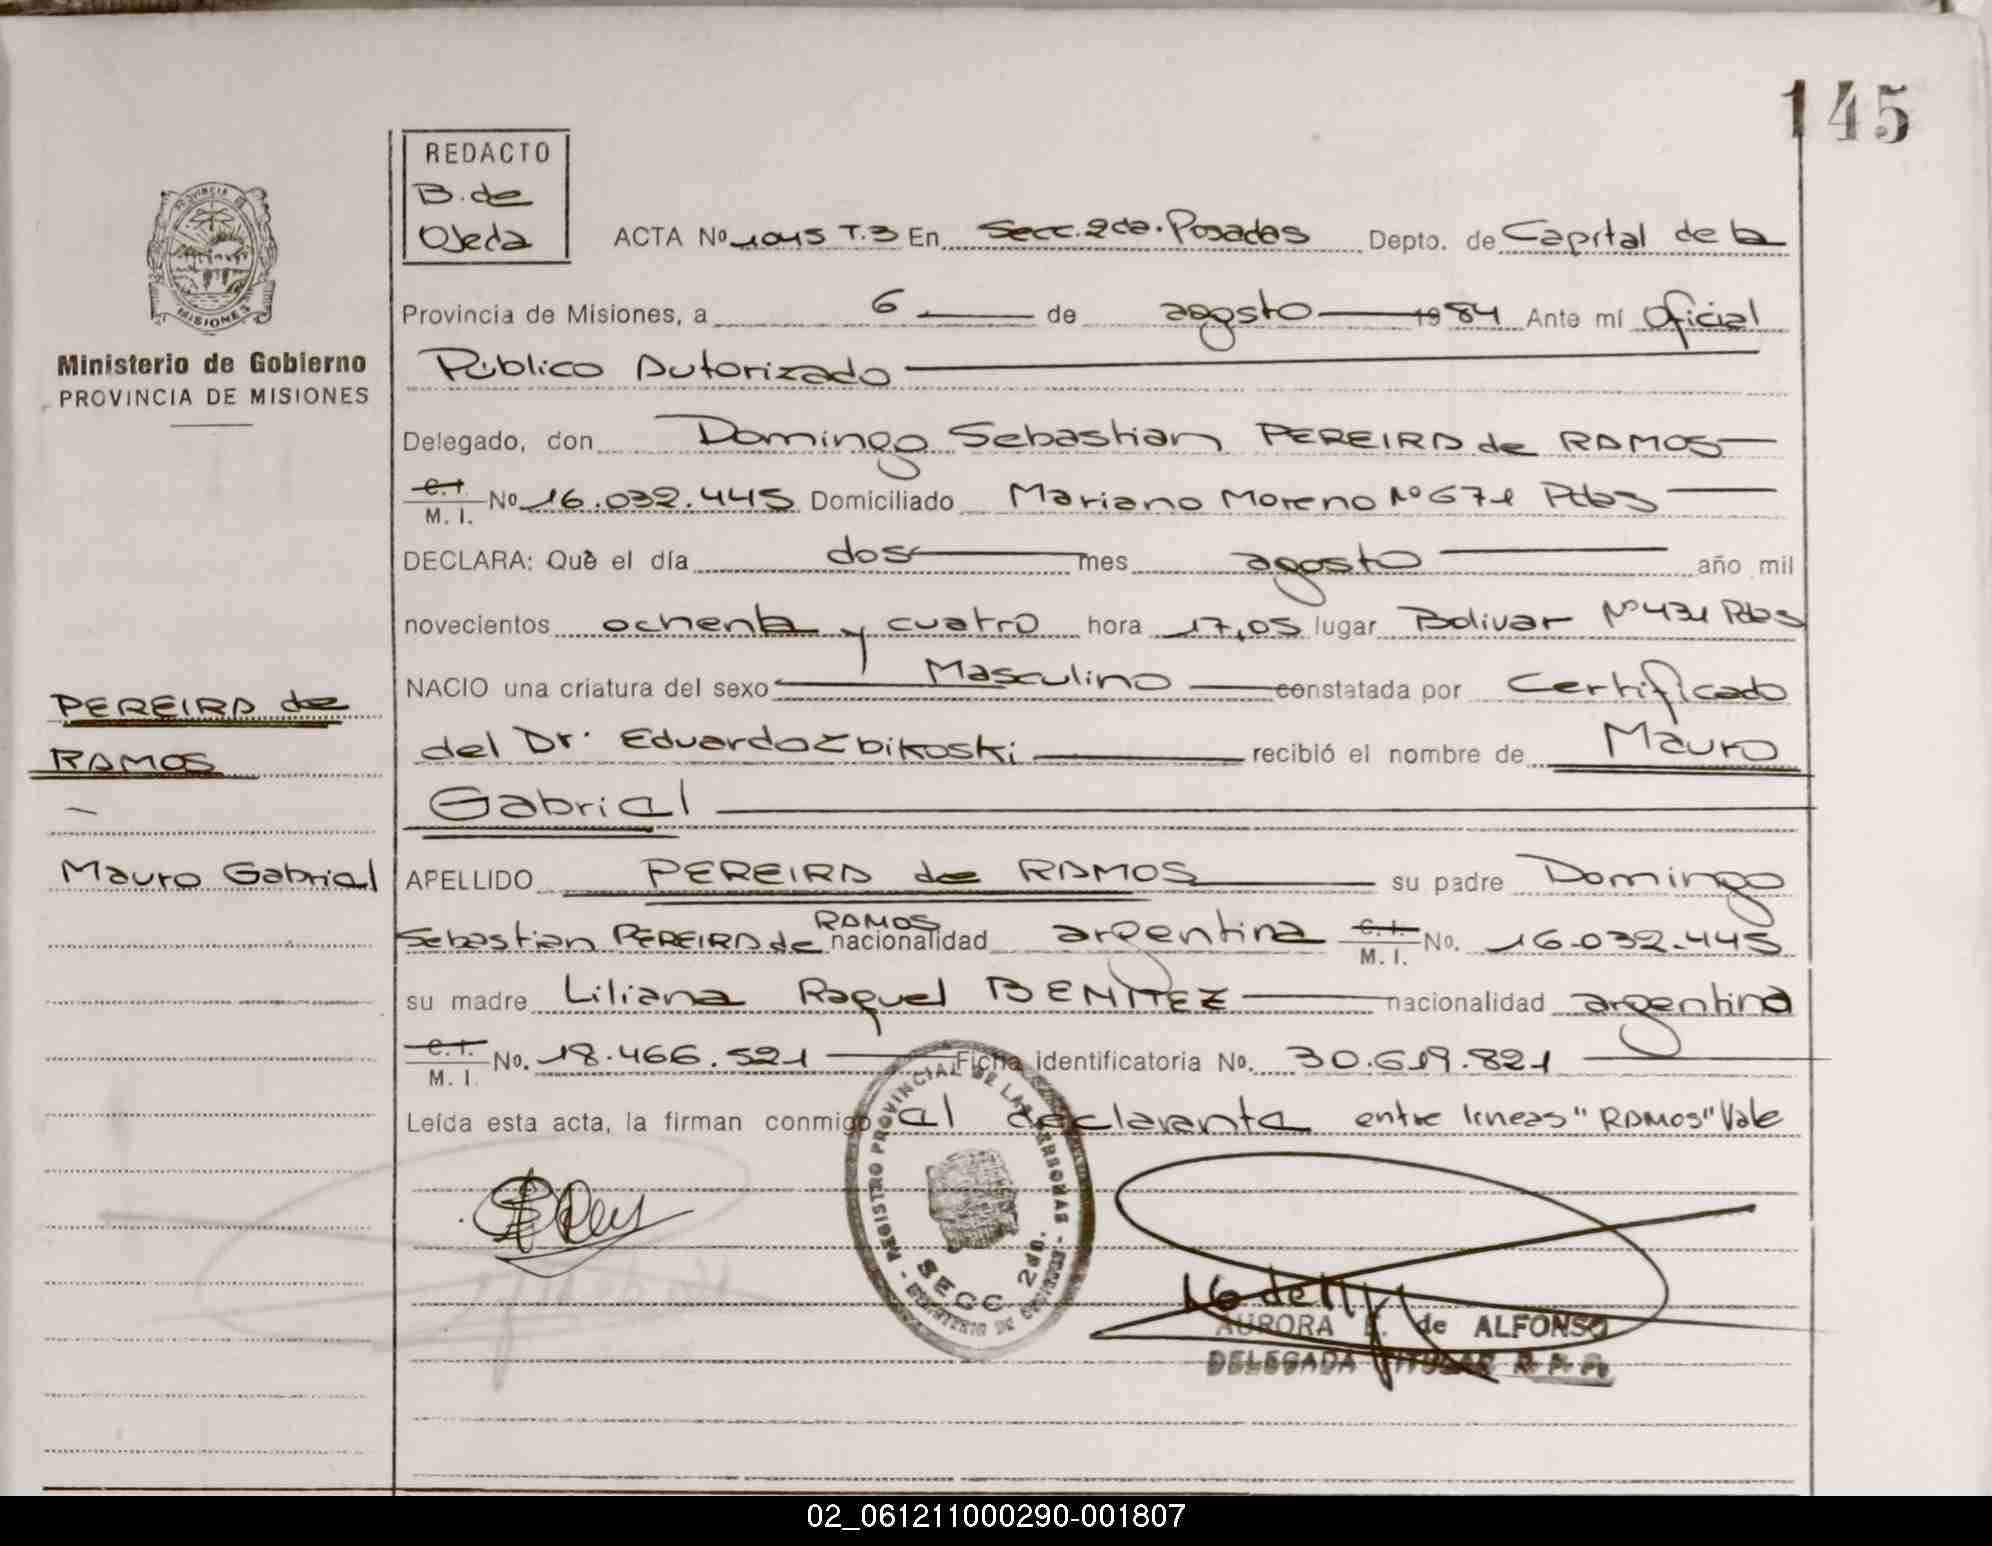 145
REDACTO
B. de
Ojeda
PROVINCIA DE
MISIONES
Ministerio de Gobierno
PROVINCIA DE MISIONES
ACTA Nº 1045 T.3 En Secc. 2da. Posadas Depto. de Capital de la
Provincia de Misiones, a 6 de agosto 1984 Ante mí Oficial
Público Autorizado
Delegado, don Domingo Sebastian PEREIRA de RAMOS
C.I. M. I. Nº 16.032.445 Domiciliado Mariano Moreno Nº 671 Pdas
DECLARA: Què el día dos mes agosto año mil
novecientos ochenta y cuatro hora 17,05 lugar Bolivar Nº 431 Pdas
NACIO una criatura del sexo Masculino constatada por Certificado
del Dr. Eduardo Zbikoski recibió el nombre de Mauro
Gabriel
APELLIDO PEREIRA de RAMOS su padre Domingo
Sebastian PEREIRA de RAMOS nacionalidad argentina C.I. M. I. No. 16.032.445
su madre Liliana Raquel BENITEZ nacionalidad argentina
C.I. M. I. No. 18.466.521 Ficha identificatoria No. 30.619.821
Leída esta acta, la firman conmigo el declarante entre lineas "RAMOS" Vale
PEREIRA de
RAMOS
Mauro Gabriel
REGISTRO PROVINCIAL DE LAS PERSONAS
SECC. 2da.
MINISTERIO DE GOBIERNO
AURORA de ALFONSO
DELEGADA TITULAR R. P. P.
02_061211000290-001807